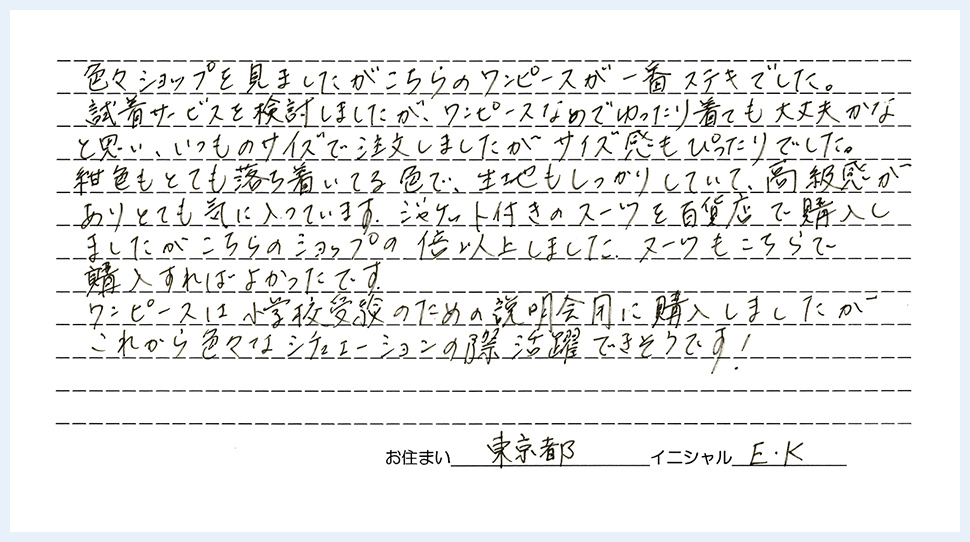 色々ショップを見ましたがこちらのワンピースが一番ステキでした。
試着サービスを検討しましたが、ワンピースなめでゆったり着ても大丈夫かな
と思い、いつものサイズで注文しましたがサイズ感もぴったりでした。
紺色もとても落ち着いてる色で、生地もしっかりしていて、高級感が
ありとても気に入っています。ジャケット付きのスーツを百貨店で購入し
ましたがこちらのショップの倍以上しました。スーツもこちらで
購入すればよかったです。
ワンピースは小学校受験のための説明会用に購入しましたが
これから色々なシチュエーションの際活躍できそうです!
お住まい 東京都 イニシャル E.K